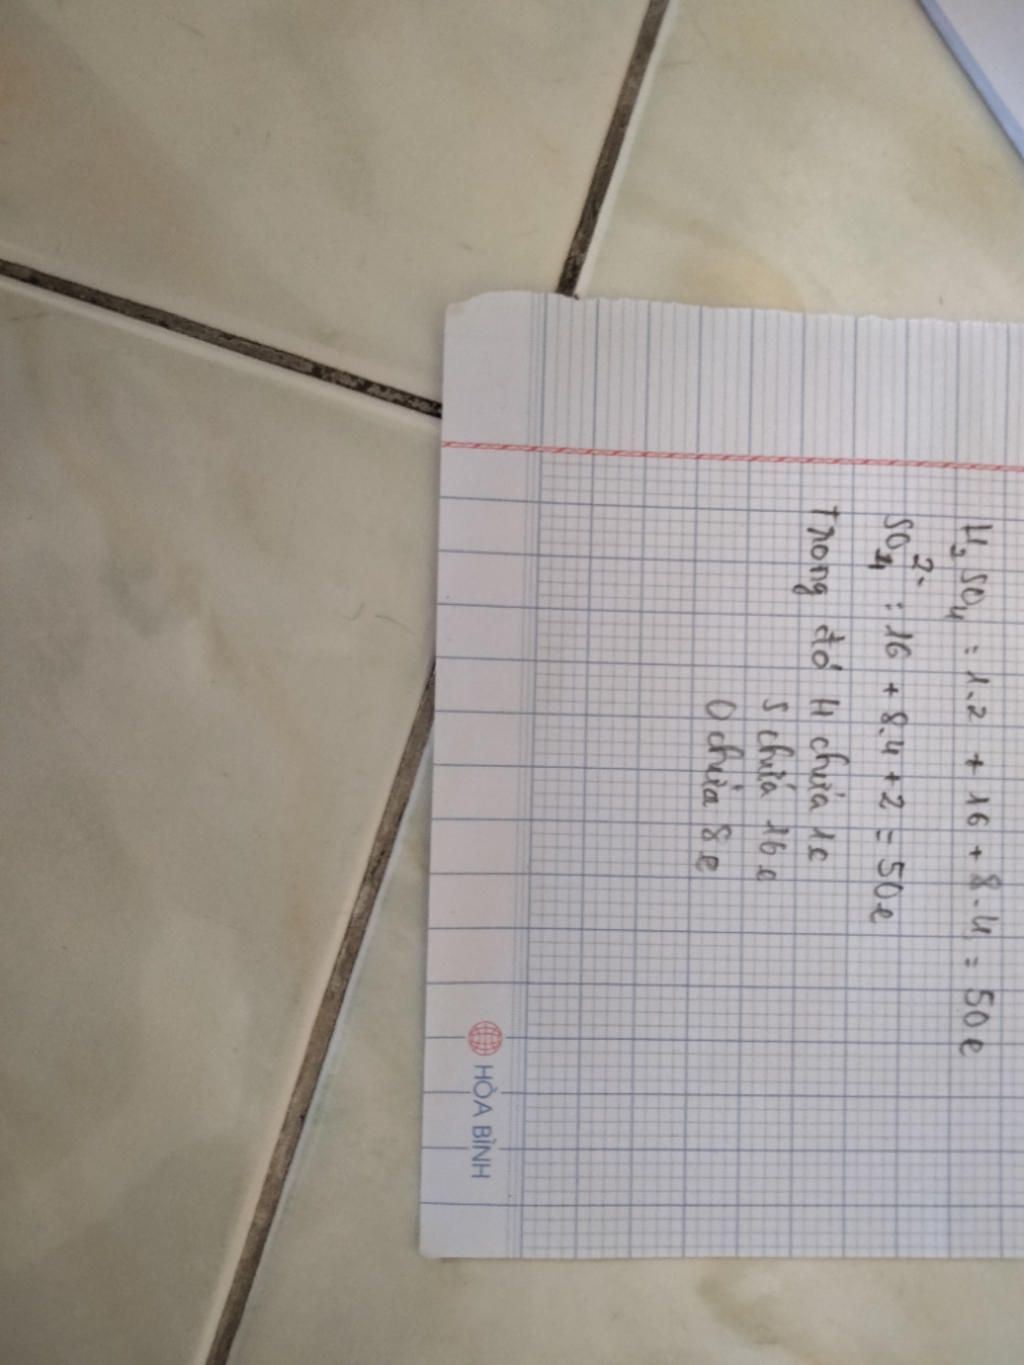 H₂SO₄ = 1.2 + 16 + 8.4 = 50e
SO₄²⁻ : 16 + 8.4 + 2 = 50e
Trong đó H chứa 1e
S chứa 16e
O chứa 8e
HÒA BÌNH